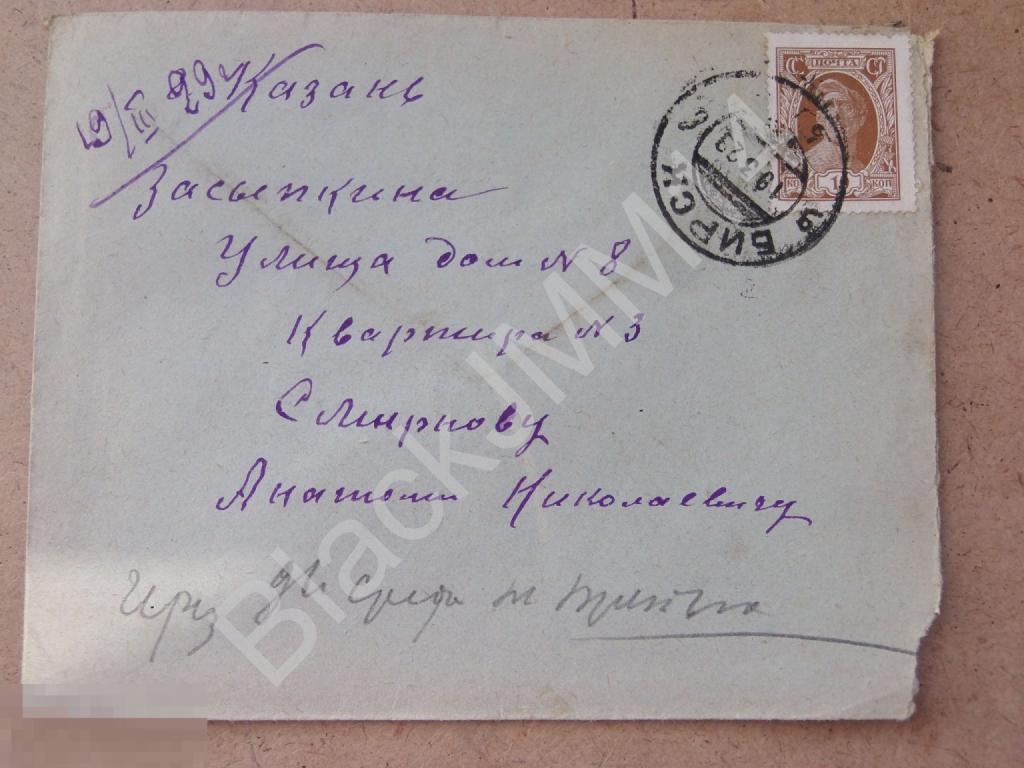 19/III 29 г
Казань
Засыпкина
Улица дом N 8
Квартира N 3
Смирнову
Анатолию Николаевичу
Через
ПОЧТА
КОП КОП
БИРСК
BlackJMM